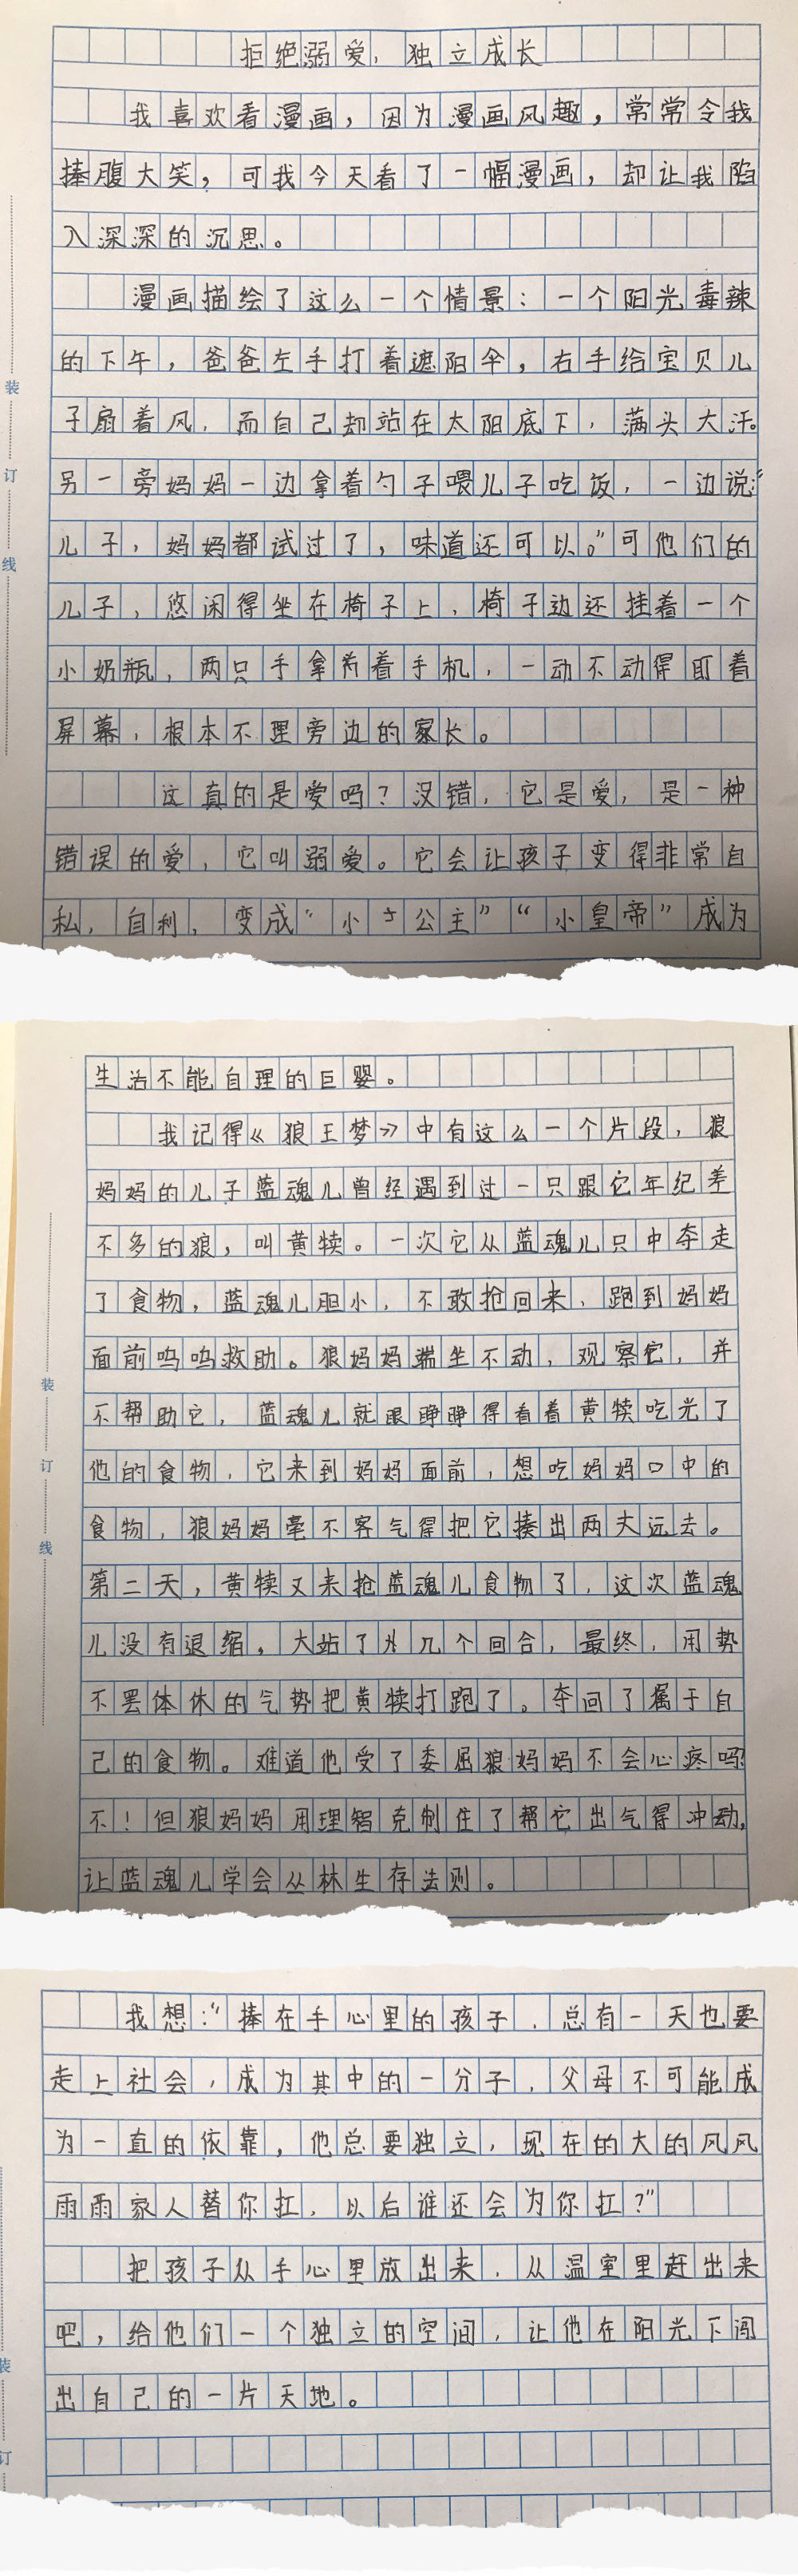 拒绝溺爱，独立成长
我喜欢看漫画，因为漫画风趣，常常令我
捧腹大笑，可我今天看了一幅漫画，却让我陷
入深深的沉思。
漫画描绘了这么一个情景：一个阳光毒辣
的下午，爸爸左手打着遮阳伞，右手给宝贝儿
子扇着风，而自己却站在太阳底下，满头大汗。
另一旁妈妈一边拿着勺子喂儿子吃饭，一边说：“
儿子，妈妈都试过了，味道还可以。”可他们的
儿子，悠闲得坐在椅子上，椅子边还挂着一个
小奶瓶，两只手拿着手机，一动不动得盯着
屏幕，根本不理旁边的家长。
这真的是爱吗？没错，它是爱，是一种
错误的爱，它叫溺爱。它会让孩子变得非常自
私，自利，变成“小公主”“小皇帝”成为
生活不能自理的巨婴。
我记得《狼王梦》中有这么一个片段，狼
妈妈的儿子蓝魂儿曾经遇到过一只跟它年纪差
不多的狼，叫黄犊。一次它从蓝魂儿口中夺走
了食物，蓝魂儿胆小，不敢抢回来，跑到妈妈
面前呜呜救助。狼妈妈端坐不动，观察它，并
不帮助它，蓝魂儿就眼睁睁得看着黄犊吃光了
他的食物，它来到妈妈面前，想吃妈妈口中的
食物，狼妈妈毫不客气得把它揍出两丈远去。
第二天，黄犊又来抢蓝魂儿食物了，这次蓝魂
儿没有退缩，大站了几个回合，最终，用势
不罢体休的气势把黄犊打跑了。夺回了属于自
己的食物。难道他受了委屈狼妈妈不会心疼吗？
不！但狼妈妈用理智克制住了帮它出气得冲动，
让蓝魂儿学会丛林生存法则。
我想：“捧在手心里的孩子，总有一天也要
走上社会，成为其中的一分子，父母不可能成
为一直的依靠，他总要独立，现在的大的风风
雨雨家人替你扛，以后谁还会为你扛？”
把孩子从手心里放出来，从温室里赶出来
吧，给他们一个独立的空间，让他在阳光下闯
出自己的一片天地。
装
订
线
装
订
线
装
订